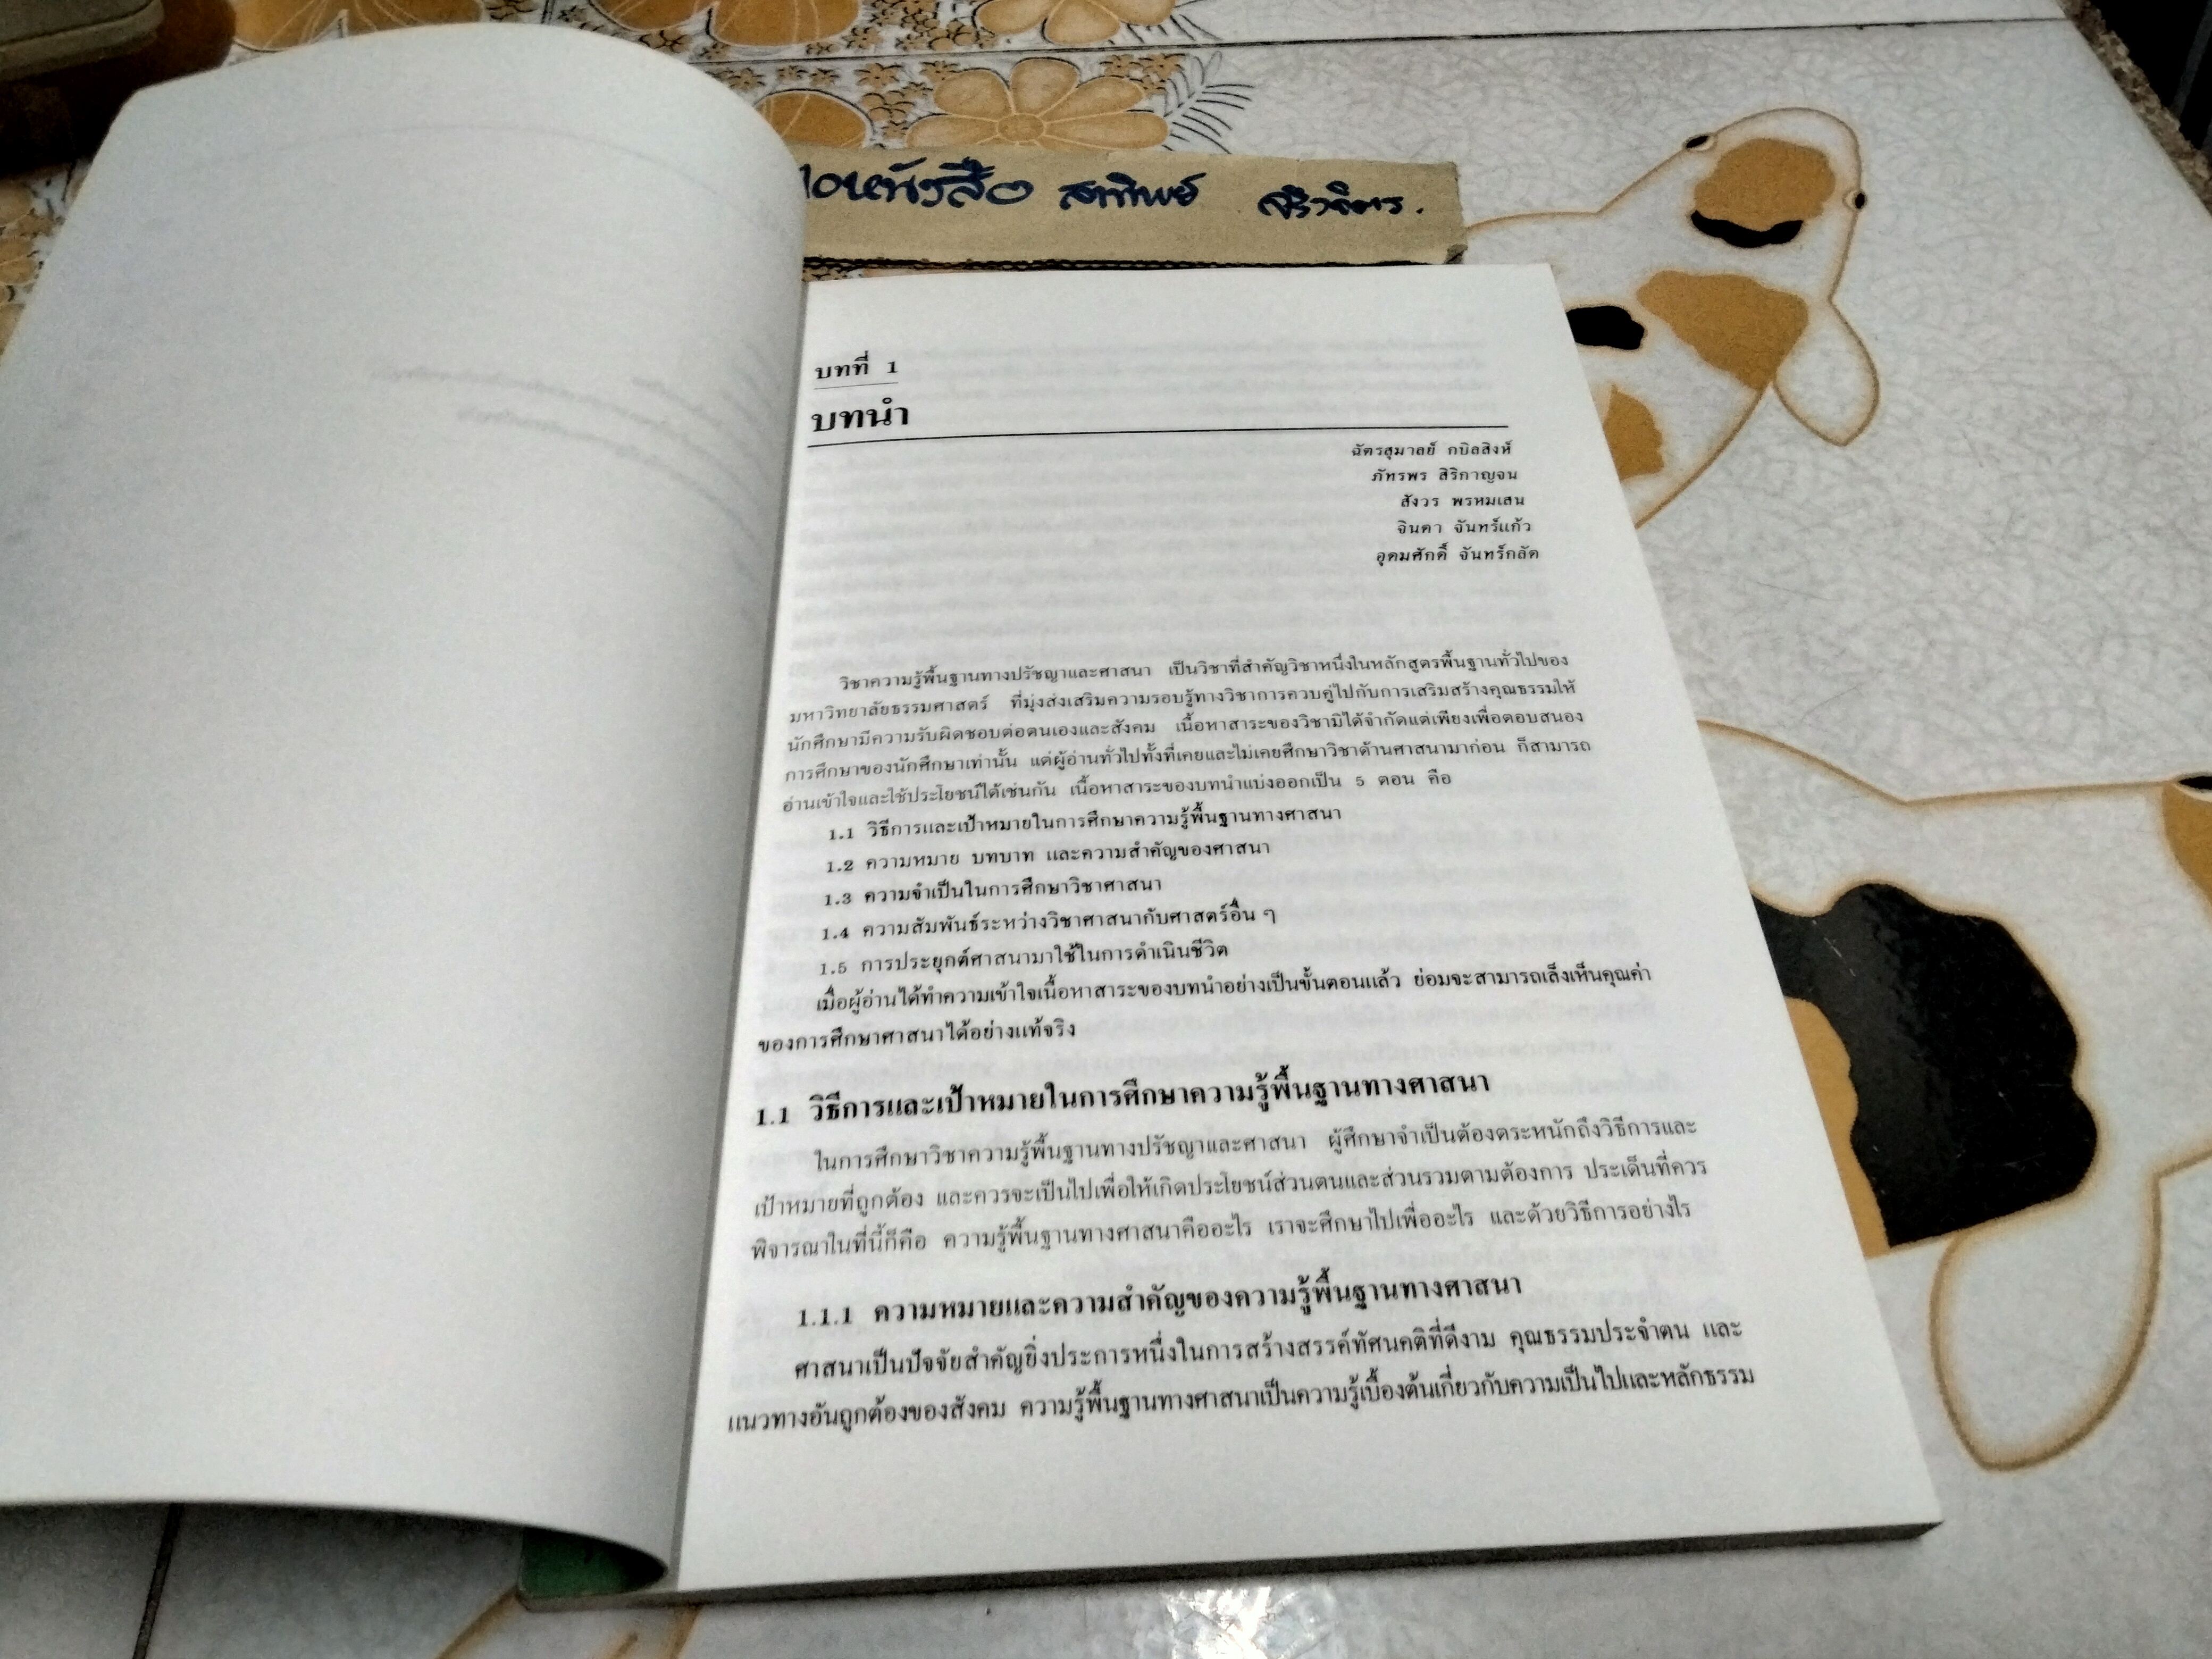 หนังสือ สาทิพย์
บทที่ 1
บทนำ
ฉัตรสุมาลย์ กบิลสิงห์
ภัทรพร สิริกาญจน
สังวร พรหมเสน
จินดา จันทร์แก้ว
อุดมศักดิ์ จันทร์กลัด
วิชาความรู้พื้นฐานทางปรัชญาและศาสนา เป็นวิชาที่สำคัญวิชาหนึ่งในหลักสูตรพื้นฐานทั่วไปของ
มหาวิทยาลัยธรรมศาสตร์ ที่มุ่งส่งเสริมความรอบรู้ทางวิชาการควบคู่ไปกับการเสริมสร้างคุณธรรมให้
นักศึกษามีความรับผิดชอบต่อตนเองและสังคม เนื้อหาสาระของวิชามิได้จำกัดแต่เพียงเพื่อตอบสนอง
การศึกษาของนักศึกษาเท่านั้น แต่ผู้อ่านทั่วไปทั้งที่เคยและไม่เคยศึกษาวิชาด้านศาสนามาก่อน ก็สามารถ
อ่านเข้าใจและใช้ประโยชน์ได้เช่นกัน เนื้อหาสาระของบทนำแบ่งออกเป็น 5 ตอน คือ
1.1 วิธีการและเป้าหมายในการศึกษาความรู้พื้นฐานทางศาสนา
1.2 ความหมาย บทบาท และความสำคัญของศาสนา
1.3 ความจำเป็นในการศึกษาวิชาศาสนา
1.4 ความสัมพันธ์ระหว่างวิชาศาสนากับศาสตร์อื่น ๆ
1.5 การประยุกต์ศาสนามาใช้ในการดำเนินชีวิต
เมื่อผู้อ่านได้ทำความเข้าใจเนื้อหาสาระของบทนำอย่างเป็นขั้นตอนแล้ว ย่อมจะสามารถเล็งเห็นคุณค่า
ของการศึกษาศาสนาได้อย่างแท้จริง
1.1 วิธีการและเป้าหมายในการศึกษาความรู้พื้นฐานทางศาสนา
ในการศึกษาวิชาความรู้พื้นฐานทางปรัชญาและศาสนา ผู้ศึกษาจำเป็นต้องตระหนักถึงวิธีการและ
เป้าหมายที่ถูกต้อง และควรจะเป็นไปเพื่อให้เกิดประโยชน์ส่วนตนและส่วนรวมตามต้องการ ประเด็นที่ควร
พิจารณาในที่นี้ก็คือ ความรู้พื้นฐานทางศาสนาคืออะไร เราจะศึกษาไปเพื่ออะไร และด้วยวิธีการอย่างไร
1.1.1 ความหมายและความสำคัญของความรู้พื้นฐานทางศาสนา
ศาสนาเป็นปัจจัยสำคัญยิ่งประการหนึ่งในการสร้างสรรค์ทัศนคติที่ดีงาม คุณธรรมประจำตน และ
แนวทางอันถูกต้องของสังคม ความรู้พื้นฐานทางศาสนาเป็นความรู้เบื้องต้นเกี่ยวกับความเป็นไปและหลักธรรม